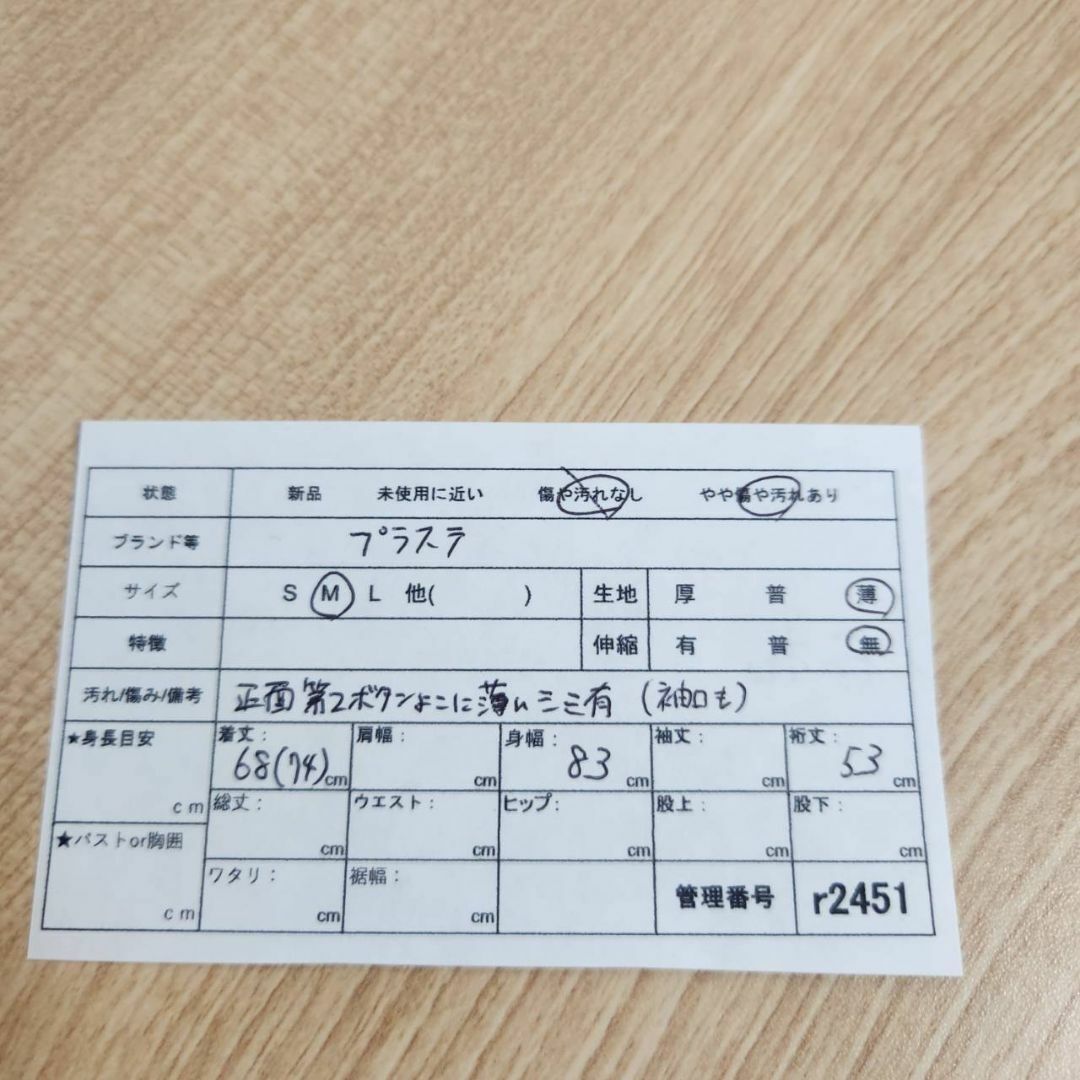 状態 新品 未使用に近い 傷や汚れなし やや傷や汚れあり
ブランド等 プラステ
サイズ S M L 他( ) 生地 厚 普 薄
特徴 伸縮 有 普 無
汚れ/傷み/備考 正面第2ボタンよこに薄いシミ有(袖口も)
★身長目安 cm 着丈: 68(74)cm 肩幅: cm 身幅: 83 cm 袖丈: cm 裄丈: 53 cm
総丈: cm ウエスト: cm ヒップ: cm 股上: cm 股下: cm
★バストor胸囲 cm ワタリ: cm 裾幅: cm 管理番号 r2451